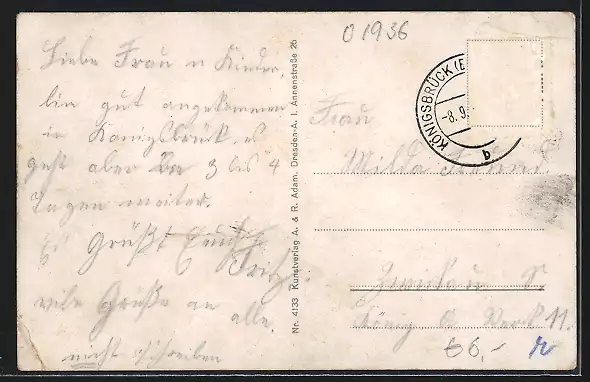 Liebe Frau u Kinder,
bin gut angekommen
in Königsbrück, es
geht aber in 3 bis 4
Tagen weiter.
Es Grüßt Euch
Fritz
viele Grüße an alle.
nicht schreiben
Nr. 4133 Kunstverlag A. & R. Adam, Dresden-A. I. Annenstraße 26
01936
KÖNIGSBRÜCK (B
-8.9.
b
Frau
Milda
Zwickau
König
11.
66,-